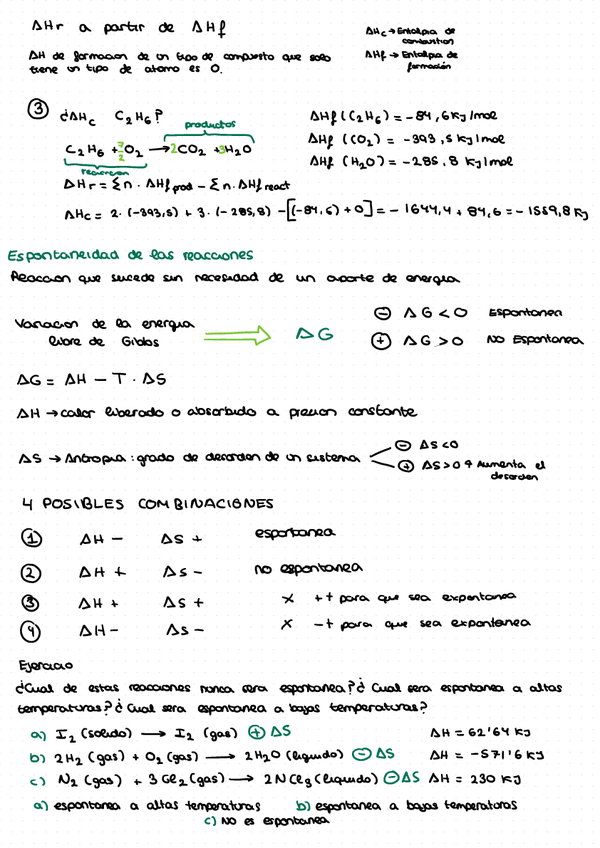 ΔHr a partir de ΔHf
ΔHc → Entalpia de combustion
ΔH de formacion de un tipo de compuesto que solo
tiene un tipo de atomo es 0.
ΔHf → Entalpia de formación
③ ¿ΔHc C2H6?
productos
C2H6 + 7/2 O2 → 2CO2 + 3H2O
reaccion
ΔHf (C2H6) = -84,6 Kj/mol
ΔHf (CO2) = -393,5 Kj/mol
ΔHf (H2O) = -285,8 Kj/mol
ΔHr = Σn · ΔHf prod - Σn · ΔHf react
ΔHc = 2·(-393,5) + 3·(-285,8) - [(-84,6) + 0] = -1644,4 + 84,6 = -1559,8 Kj
Espontaneidad de las reacciones
Reaccion que sucede sin necesidad de un aporte de energia
Variacion de la energia
libre de Gibbs
ΔG
⊖ ΔG < 0 Espontanea
⊕ ΔG > 0 No Espontanea
ΔG = ΔH - T · ΔS
ΔH → calor liberado o absorbido a presion constante
ΔS → Antropia: grado de desorden de un sistema
⊖ ΔS < 0
⊕ ΔS > 0 Aumenta el
desorden
4 POSIBLES COMBINACIONES
① ΔH - ΔS + espontanea
② ΔH + ΔS - no espontanea
③ ΔH + ΔS + x ++ para que sea expontanea
④ ΔH - ΔS - x -+ para que sea expontanea
Ejercicio
¿Cual de estas reacciones nunca sera espontanea? ¿Cual sera espontanea a altas
temperaturas? ¿Cual sera espontanea a bajas temperaturas?
a) I2 (solido) → I2 (gas) ⊕ ΔS ΔH = 62'64 KJ
b) 2H2 (gas) + O2 (gas) → 2H2O (liquido) ⊖ ΔS ΔH = -571'6 KJ
c) N2 (gas) + 3Cl2 (gas) → 2NCl3 (liquido) ⊖ ΔS ΔH = 230 KJ
a) espontanea a altas temperaturas b) espontanea a bajas temperaturas
c) No es espontanea